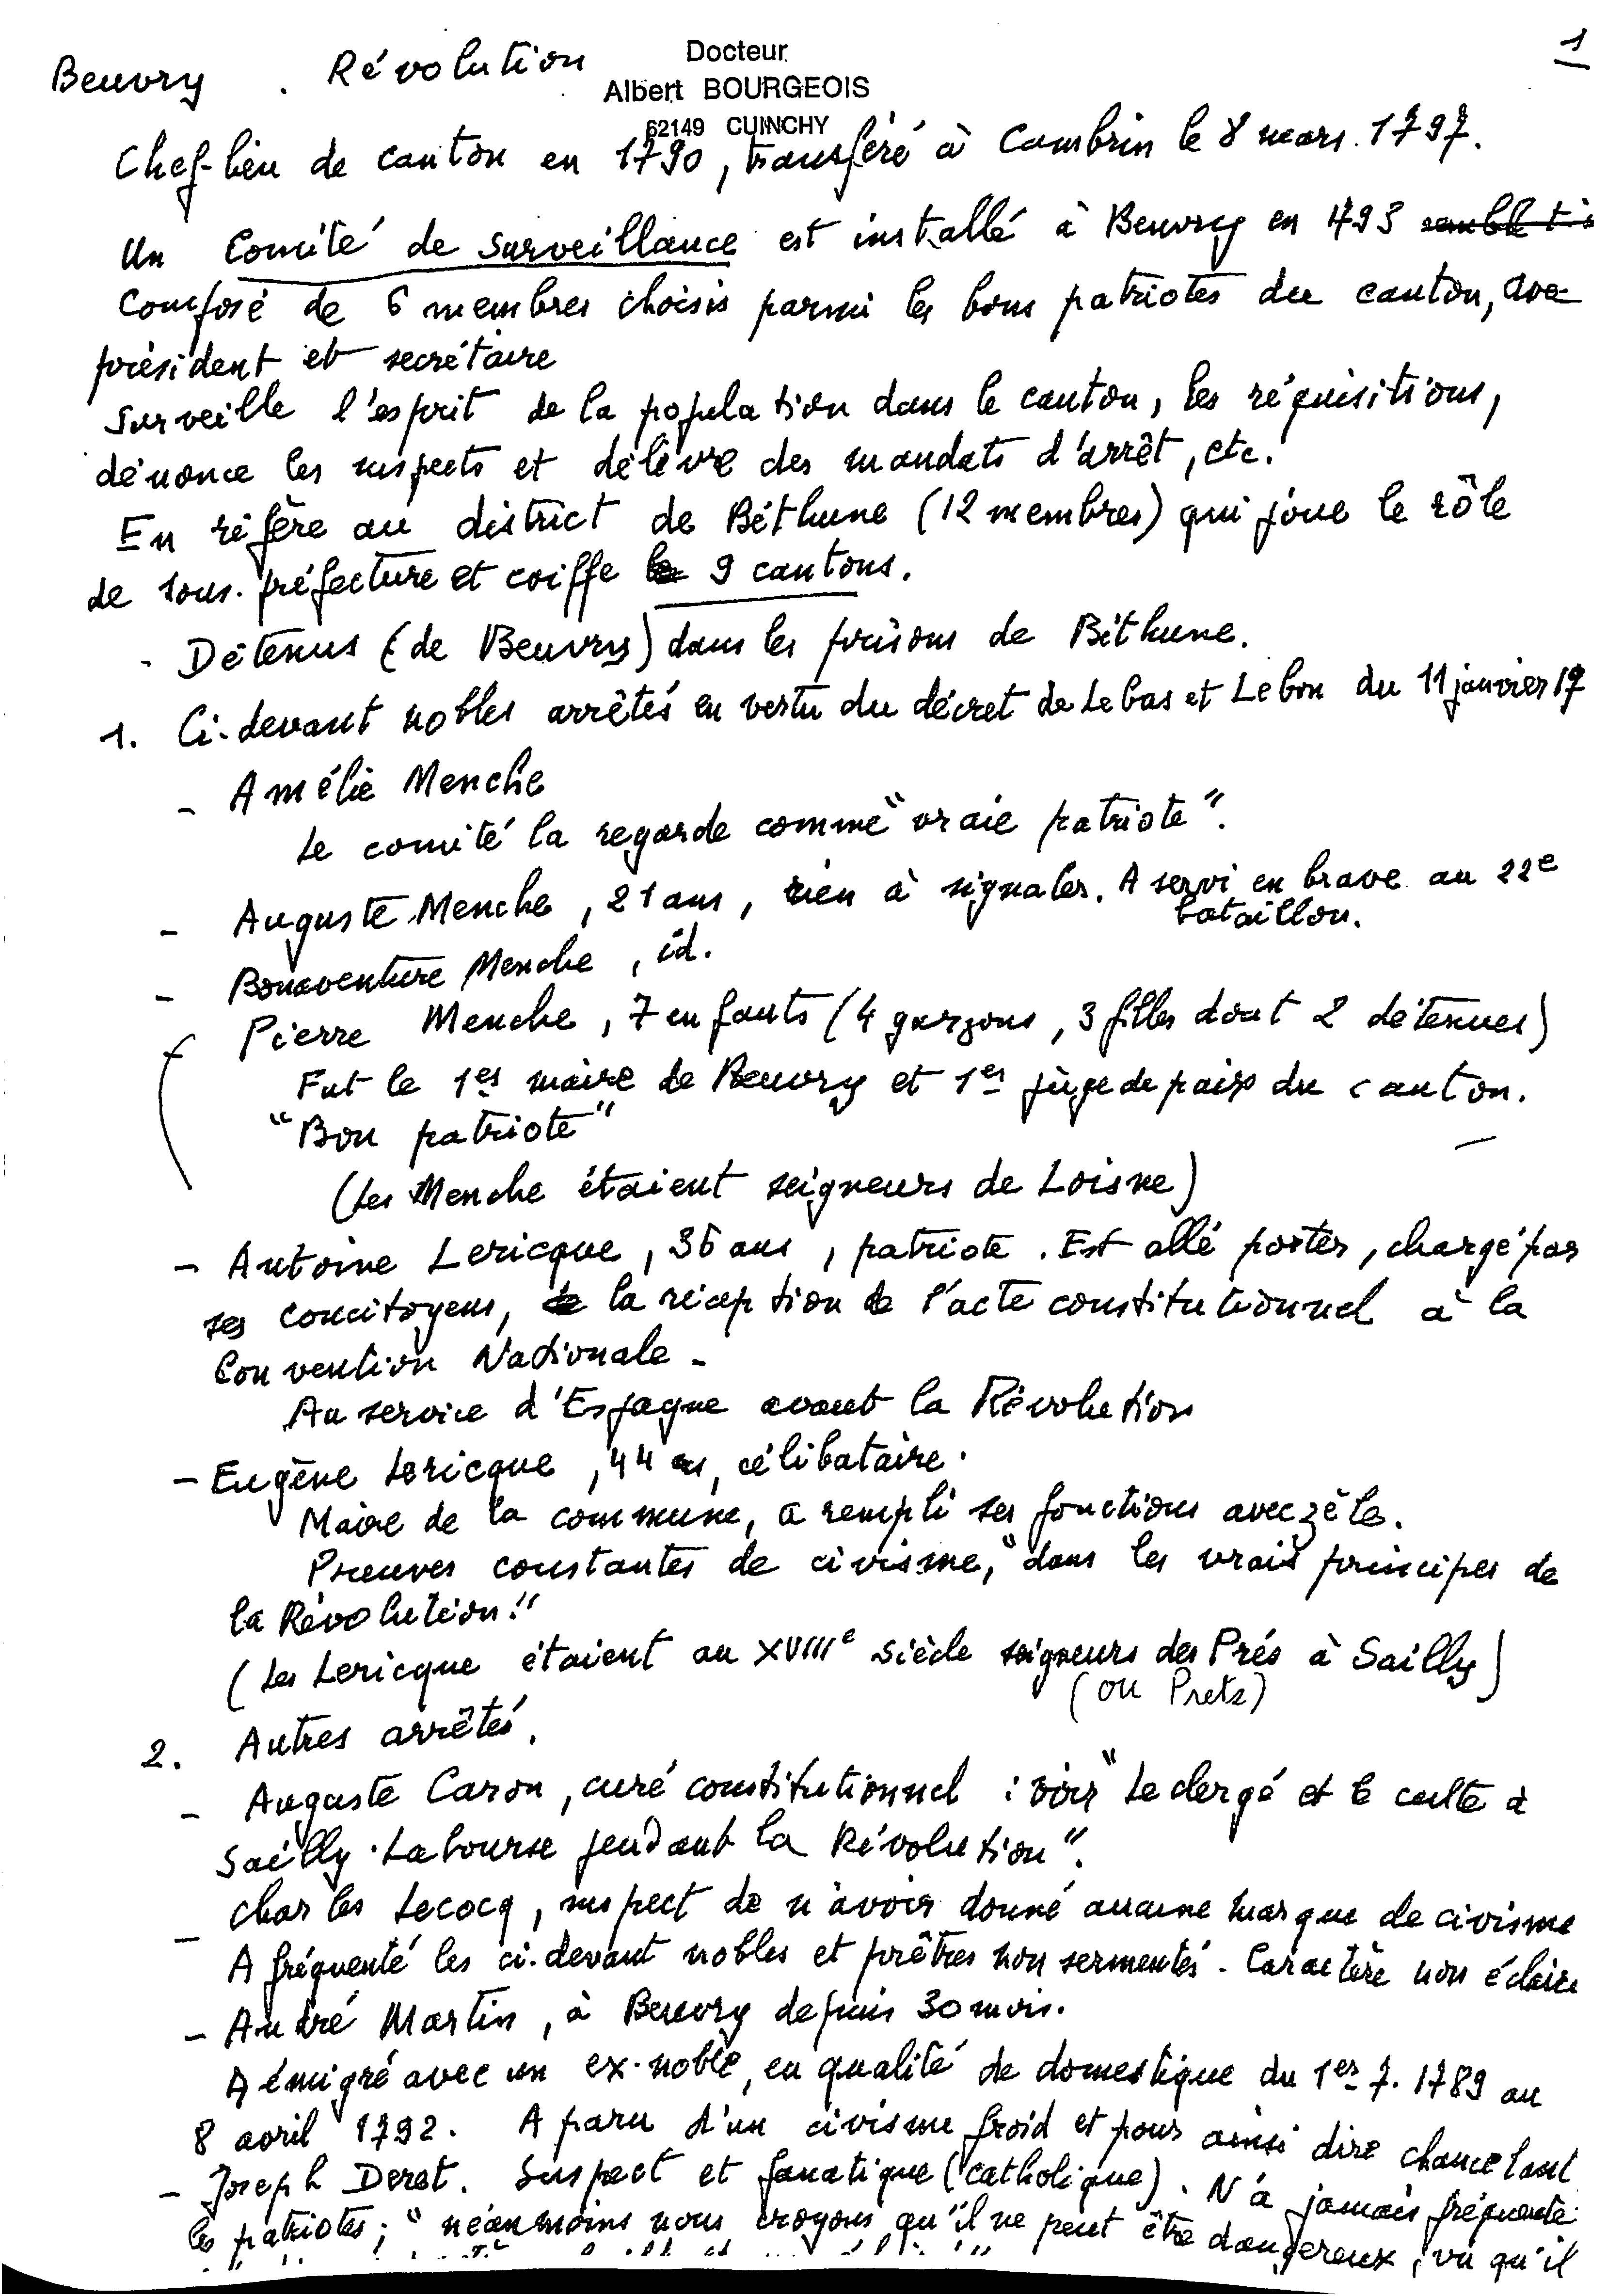 1
Beuvry . Révolution
Docteur
Albert BOURGEOIS
62149 CUINCHY
Chef-lieu de canton en 1790, transféré à Cambrin le 8 mars. 1797.
Un Comité de surveillance est installé à Beuvry en 1793
Composé de 6 membres choisis parmi les bons patriotes du canton, avec
président et secrétaire
Surveille l'esprit de la population dans le canton, les réquisitions,
dénonce les suspects et délivre des mandats d'arrêt, etc.
En réfère au district de Béthune (12 membres) qui joue le rôle
de sous-préfecture et coiffe 9 cantons.
- Détenus (de Beuvry) dans les prisons de Béthune.
1. Ci-devant nobles arrêtés en vertu du décret de Lebas et Lebon du 11 janvier 17
- Amélie Menche
Le comité la regarde comme "vraie patriote".
- Auguste Menche, 21 ans, rien à signaler. A servi en brave au 22e
bataillon.
- Bonaventure Menche, id.
Pierre Menche, 7 enfants (4 garçons, 3 filles dont 2 détenues)
Fut le 1er maire de Beuvry et 1er juge de paix du canton.
"Bon patriote"
(Les Menche étaient seigneurs de Loisne)
- Antoine Lericque, 36 ans, patriote. Est allé porter, chargé par
ses concitoyens, la réception de l'acte constitutionnel à la
Convention Nationale -
Au service d'Espagne avant la Révolution
- Eugène Lericque, 44 ans, célibataire.
Maire de la commune, a rempli ses fonctions avec zèle.
Preuves constantes de civisme, "dans les vrais principes de
la Révolution."
(Les Lericque étaient au XVIIIe siècle seigneurs des Prés à Sailly)
(ou Pretz)
2. Autres arrêtés.
- Auguste Caron, curé constitutionnel : voir "Le clergé et le culte à
Sailly-Labourse pendant la Révolution".
- Charles Lecocq, suspect de n'avoir donné aucune marque de civisme
A fréquenté les ci-devant nobles et prêtres non sermentés. Caractère non éclairé
- André Martin, à Beuvry depuis 30 mois.
A émigré avec un ex-noble, en qualité de domestique du 1er 7. 1789 au
8 avril 1792. A paru d'un civisme froid et pour ainsi dire chancelant
- Joseph Deret. Suspect et fanatique (catholique). N'a jamais fréquenté
les patriotes; "néanmoins nous croyons qu'il ne peut être dangereux, vu qu'il